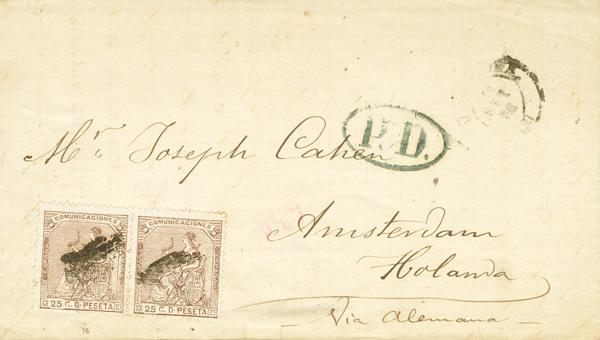 P.D.
Mr. Joseph Cahen
Amsterdam
Holanda
Via Alemana
COMUNICACIONES COMUNICACIONES
25 C. D. PESETA 25 C. D. PESETA